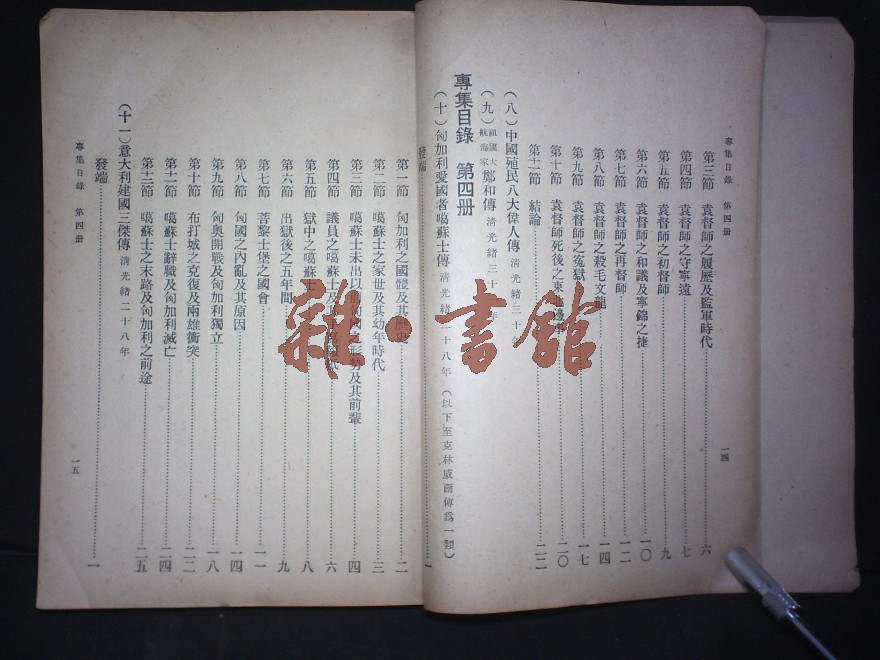 專集目錄 第四冊
一四
第三節 袁督師之履歷及監軍時代 六
第四節 袁督師之守寧遠 七
第五節 袁督師之初督師 九
第六節 袁督師之和議及寧錦之捷 一〇
第七節 袁督師之再督師 一二
第八節 袁督師之殺毛文龍 一四
第九節 袁督師之冤獄 一七
第十節 袁督師死後之東 二〇
第十一節 結論 二二
(八)中國殖民八大偉人傳 清光緒三十年
(九)祖國大航海家鄭和傳 清光緒三十 年
專集目錄 第四冊
(十)匈加利愛國者噶蘇士傳 清光緒 十八年 (以下至克林威爾傳為一類)
發端 一
第一節 匈加利之國體及其歷史 二
第二節 噶蘇士之家世及其幼年時代 三
第三節 噶蘇士未出以前匈國之形勢及其前輩 四
第四節 議員之噶蘇士及其 六
第五節 獄中之噶蘇士 八
第六節 出獄後之五年間 九
第七節 菩黎士堡之國會 一一
第八節 匈國之內亂及其原因 一四
第九節 匈奧開戰及匈加利獨立 一八
第十節 布打城之克復及兩雄衝突 二二
第十一節 噶蘇士辭職及匈加利滅亡 二四
第十二節 噶蘇士之末路及匈加利之前途 二五
(十一)意大利建國三傑傳 清光緒二十八年
發端 一
專集目錄 第四冊
一五
雜·書館